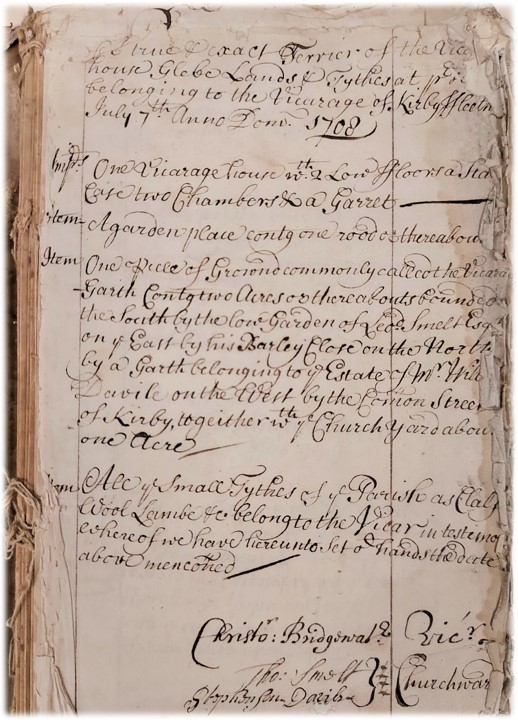 A true & exact Terrier of the Vica
house Glebe Lands & Tythes at pres
belonging to the Vicarage of Kirby ffleetm
July 7th Anno Dom. 1708
Imps One Vicarage house wth 2 Low ffloors a Sta
Case two Chambers & a Garret
Item A garden place contg one rood or thereabou
Item One Piece of Ground commonly called the Vicara
Garth Contg two Acres or thereabouts bounded on
the South by the low Garden of Leo: Smelt Esq
on ye East by his Barley Close on the North
by a Garth belonging to ye Estate of Mr Wil
Davile on the West by the Comon Street
of Kirby, togeither wth ye Church yard abou
one Acre
Item All ye Small Tythes of ye Parish as Calf
Wool Lambe &c belong to the Vicar in testemo
whereof we have hereunto set or hands the date
above menconed
Christor: Bridgewatr Vicr
Tho: Smelt
Stephenson Davile } Churchwar